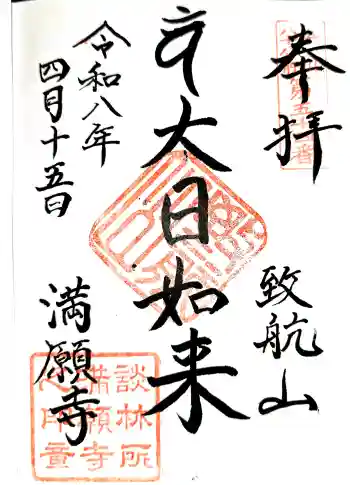 奉拝
致航山
大日如来
令和八年
四月十五日
満願寺
談林所
満願寺